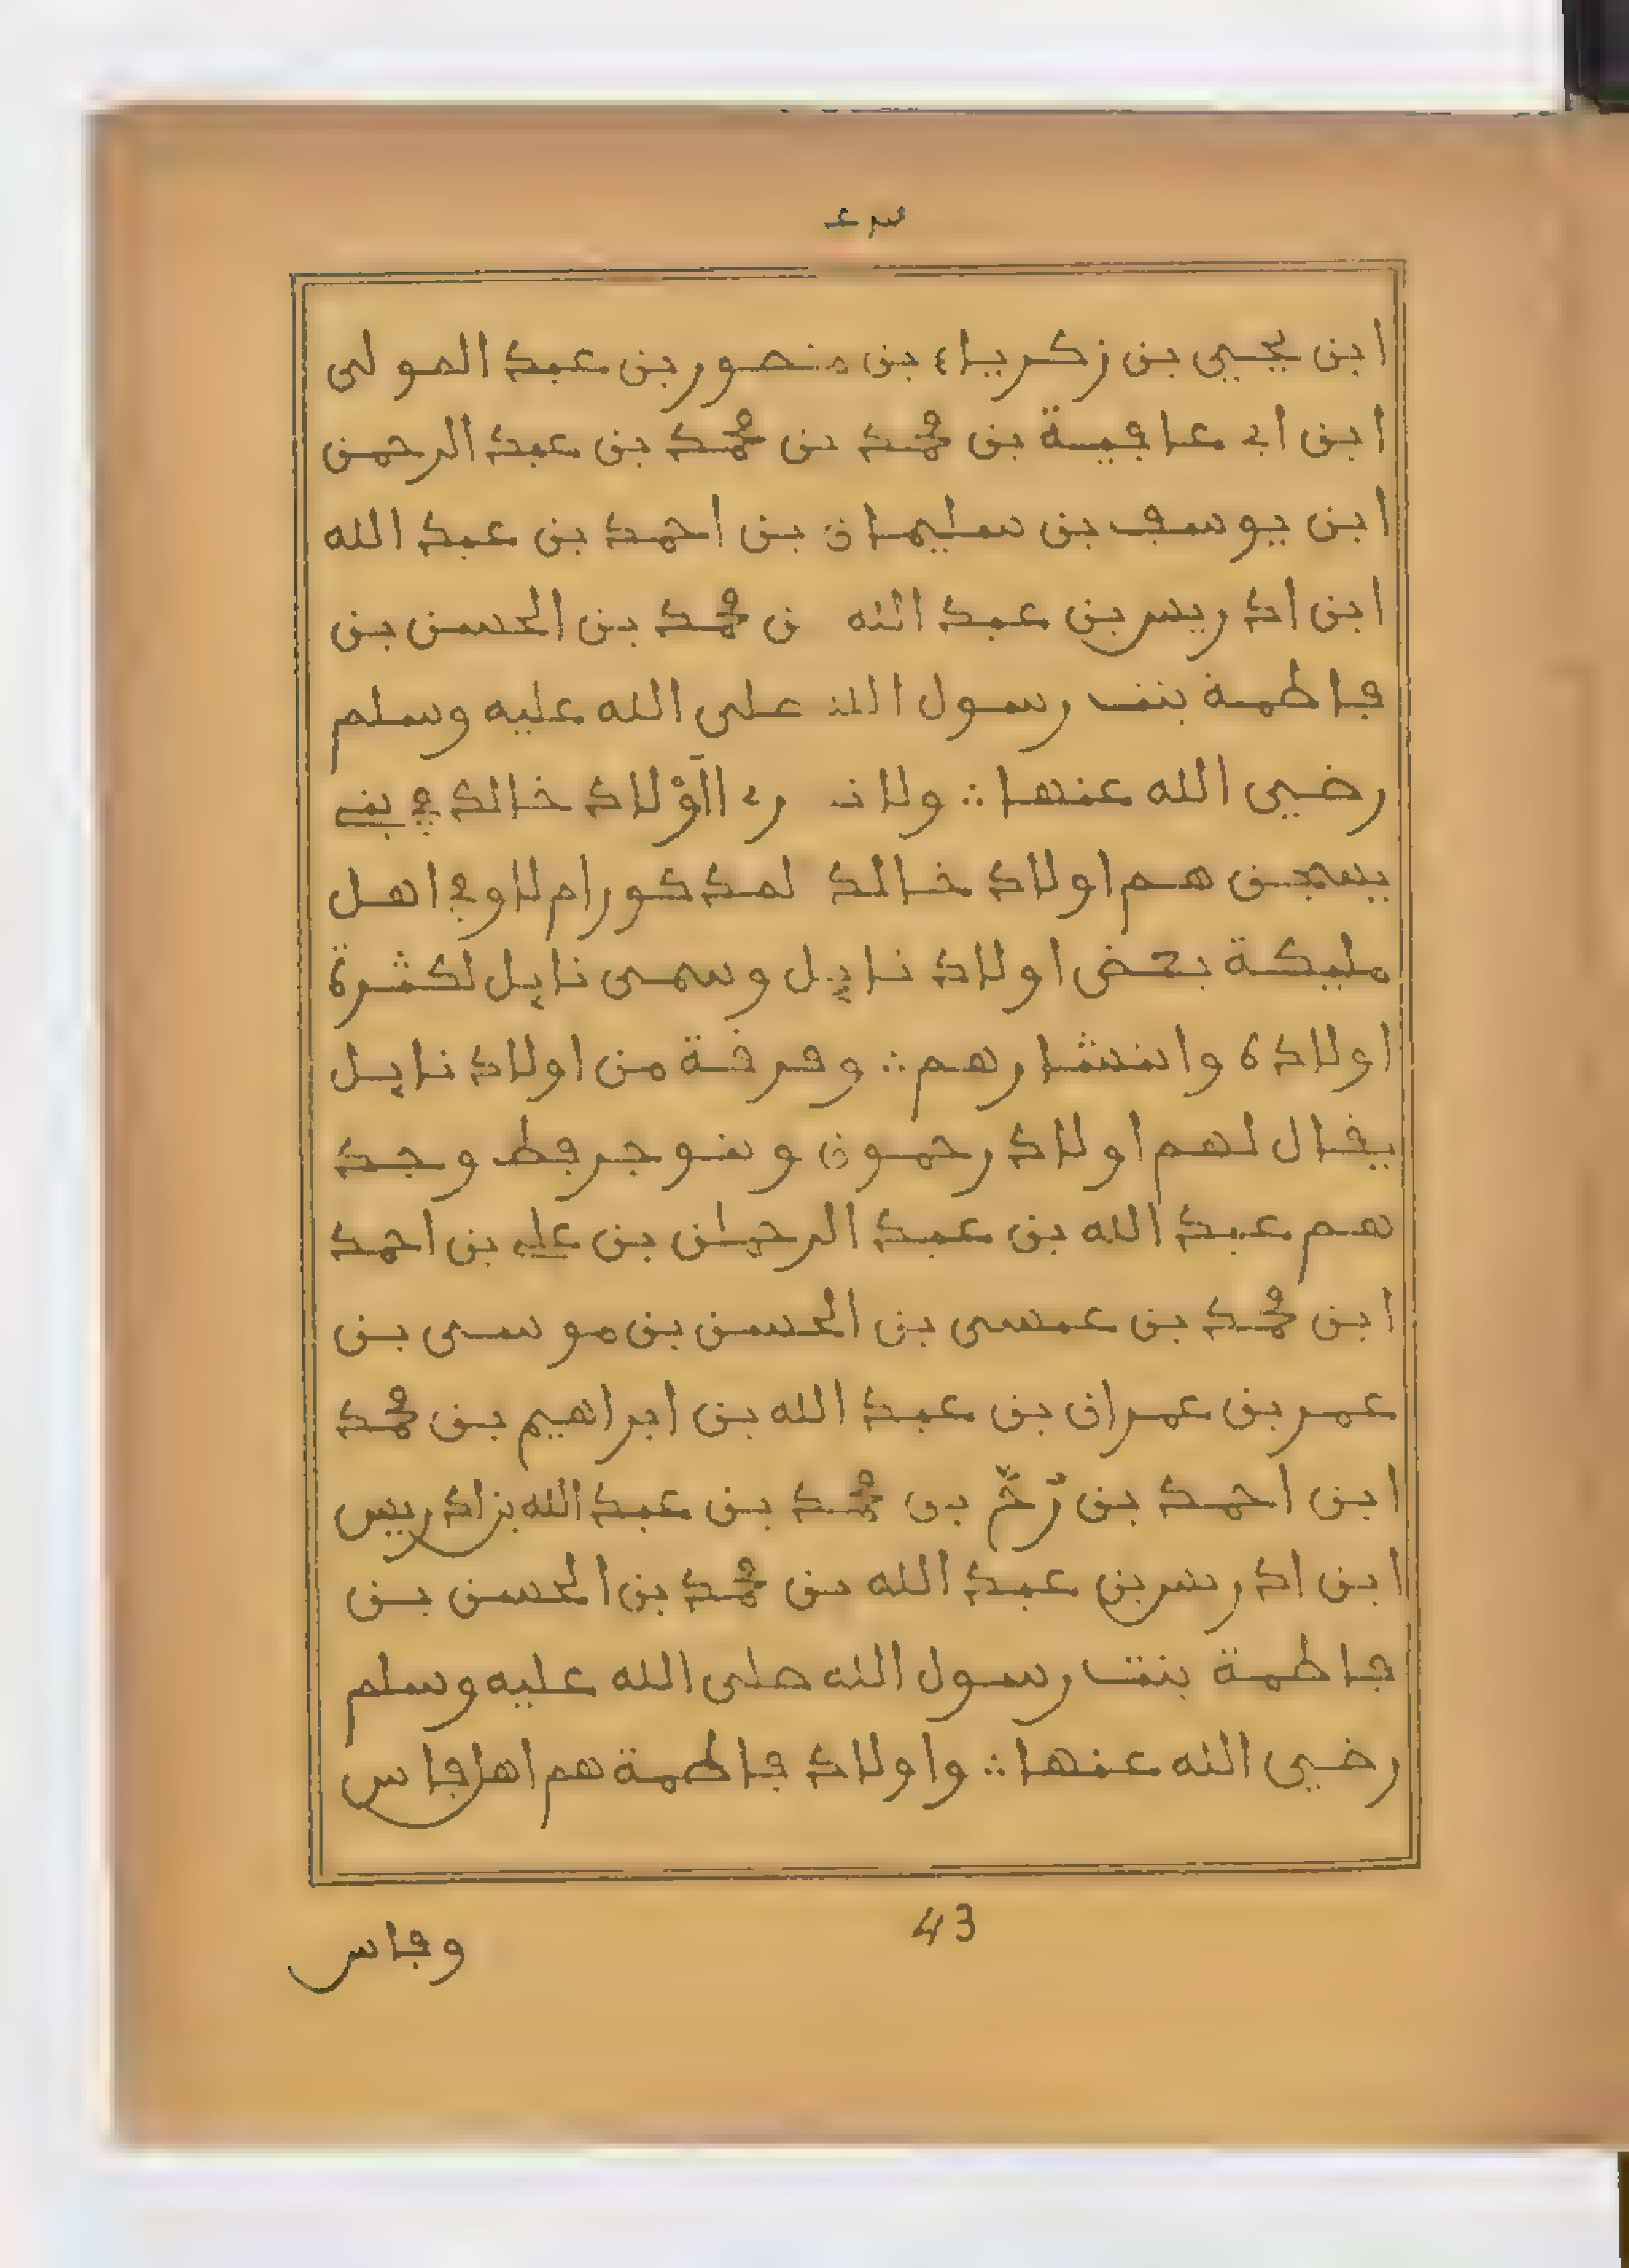 ابن يحيى بن زكرياء بن منصور بن عبد المولى
ابن ابي عافية بن محمد بن محمد بن عبد الرحمن
ابن يوسف بن سليمان بن احمد بن عبد الله
ابن ادريس بن عبد الله ن محمد بن الحسن بن
فاطمة بنت رسول الله على الله عليه وسلم
رضي الله عنها ∴ ولا خالد في بني
هم اولاد خالد لمدكور ام لا وفي اهل
مليكة بعض اولاد نايل وسمى نايل لكثرة
اولاده وانتشارهم ∴ وفرقة من اولاد نايل
يقال لهم اولاد رحمون وجد
هم عبد الله بن عبد الرحمان بن علي بن احمد
ابن محمد بن عيسى بن الحسن بن موسى بن
عمر بن عمران بن عبد الله بن ابراهيم بن محمد
ابن احمد بن بن محمد بن عبد الله بن ادريس
ابن ادريس بن عبد الله بن محمد بن الحسن بن
فاطمة بنت رسول الله صلى الله عليه وسلم
رضي الله عنها ∴ واولاد فاطمة هم اهل فاس
43
وفاس